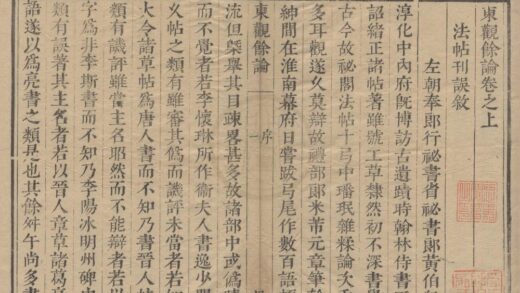 東觀餘論卷之上
法帖刊誤敘
左朝奉郎行祕書省祕書郎黃伯
淳化中內府旣博訪古遺蹟時翰林侍書
詔緒正諸帖著雖號工草隸然初不深書學
古今故祕閣法帖十弓中璠珉雜糅論次
多耳觀遂久莫辯故禮部郎米芾元章筆
紳間在淮南幕府日嘗跋弓尾作數百語
東觀餘論 序 一
流但槩舉其目疎畧甚多故諸部中或僞
而不覺者若李懷琳所作衞夫人書逸少
乂帖之類有雖審其僞而譏評未當者若
大令諸草帖爲唐人書而不知乃書晉人
類有譏評雖當主名昭然而不能辯者若以
字爲非李斯書而不知乃李陽冰明州碑
類有誤著其主名者若以晉人章草諸葛亮
語遂以爲亮書之類是也其餘舛午尚多